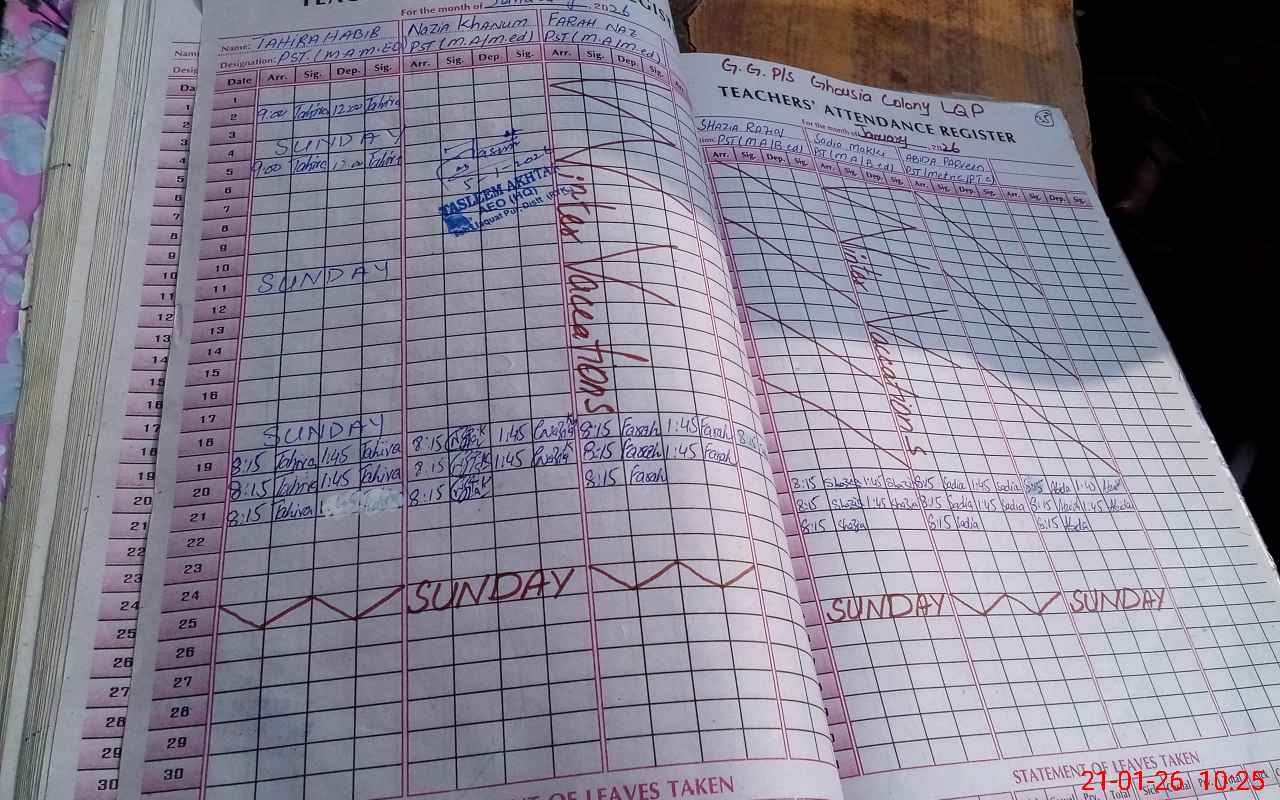 For the month of January 2026
Name: TAHIRA HABIB Nazia Khanum FARAH NAZ
Designation: PST.(M.A.M.ED) PST(M.A/M.ed) PST(M.A/M.ed)
Date Arr. Sig. Dep. Sig. Arr. Sig. Dep Sig. Arr. Sig. Dep. Sig.
1
2 9:00 Tahira 12:00 Tahira
3 SUNDAY
4 9:00 Tahira Tahira
5
6
7
8
9
10 SUNDAY
11
12
13
14
15
16
17 SUNDAY
18 8:15 Tahira 1:45 Tahira 8:15 1:45 8:15 Farah 1:45 Farah
19 8:15 Tahira 1:45 Tahira 8:15 1:45 8:15 Farah 1:45 Farah
20 8:15 Tahira 8:15 8:15 Farah
21
22
23
24 SUNDAY
25
26
27
28
29
30
5-1-2026
TASLEEM AKHTAR
AEO (HQ)
Winter Vaccations
OF LEAVES TAKEN
G.G.P/S Ghousia Colony LQP
TEACHERS' ATTENDANCE REGISTER
For the month of January 2026
SHAZIA Sadia ABIDA PARVEEN
PST(M.A/B.ed) PST(M.A/B.ed) PST(metric/PTC)
Arr. Sig. Dep. Sig. Arr. Sig. Dep. Sig. Arr. Sig. Dep. Sig. Arr. Sig. Dep. Sig.
Winter Vaccations
8:15 Shazia 1:45 Shazia 8:15 Sadia 1:45 Sadia 8:15 Abida 1:45 Abida
8:15 Shazia 1:45 Shazia 8:15 Sadia 1:45 Sadia 8:15 Abida 1:45 Abida
8:15 Shazia 8:15 Sadia 8:15 Abida
SUNDAY SUNDAY
STATEMENT OF LEAVES TAKEN
21-01-26 10:25